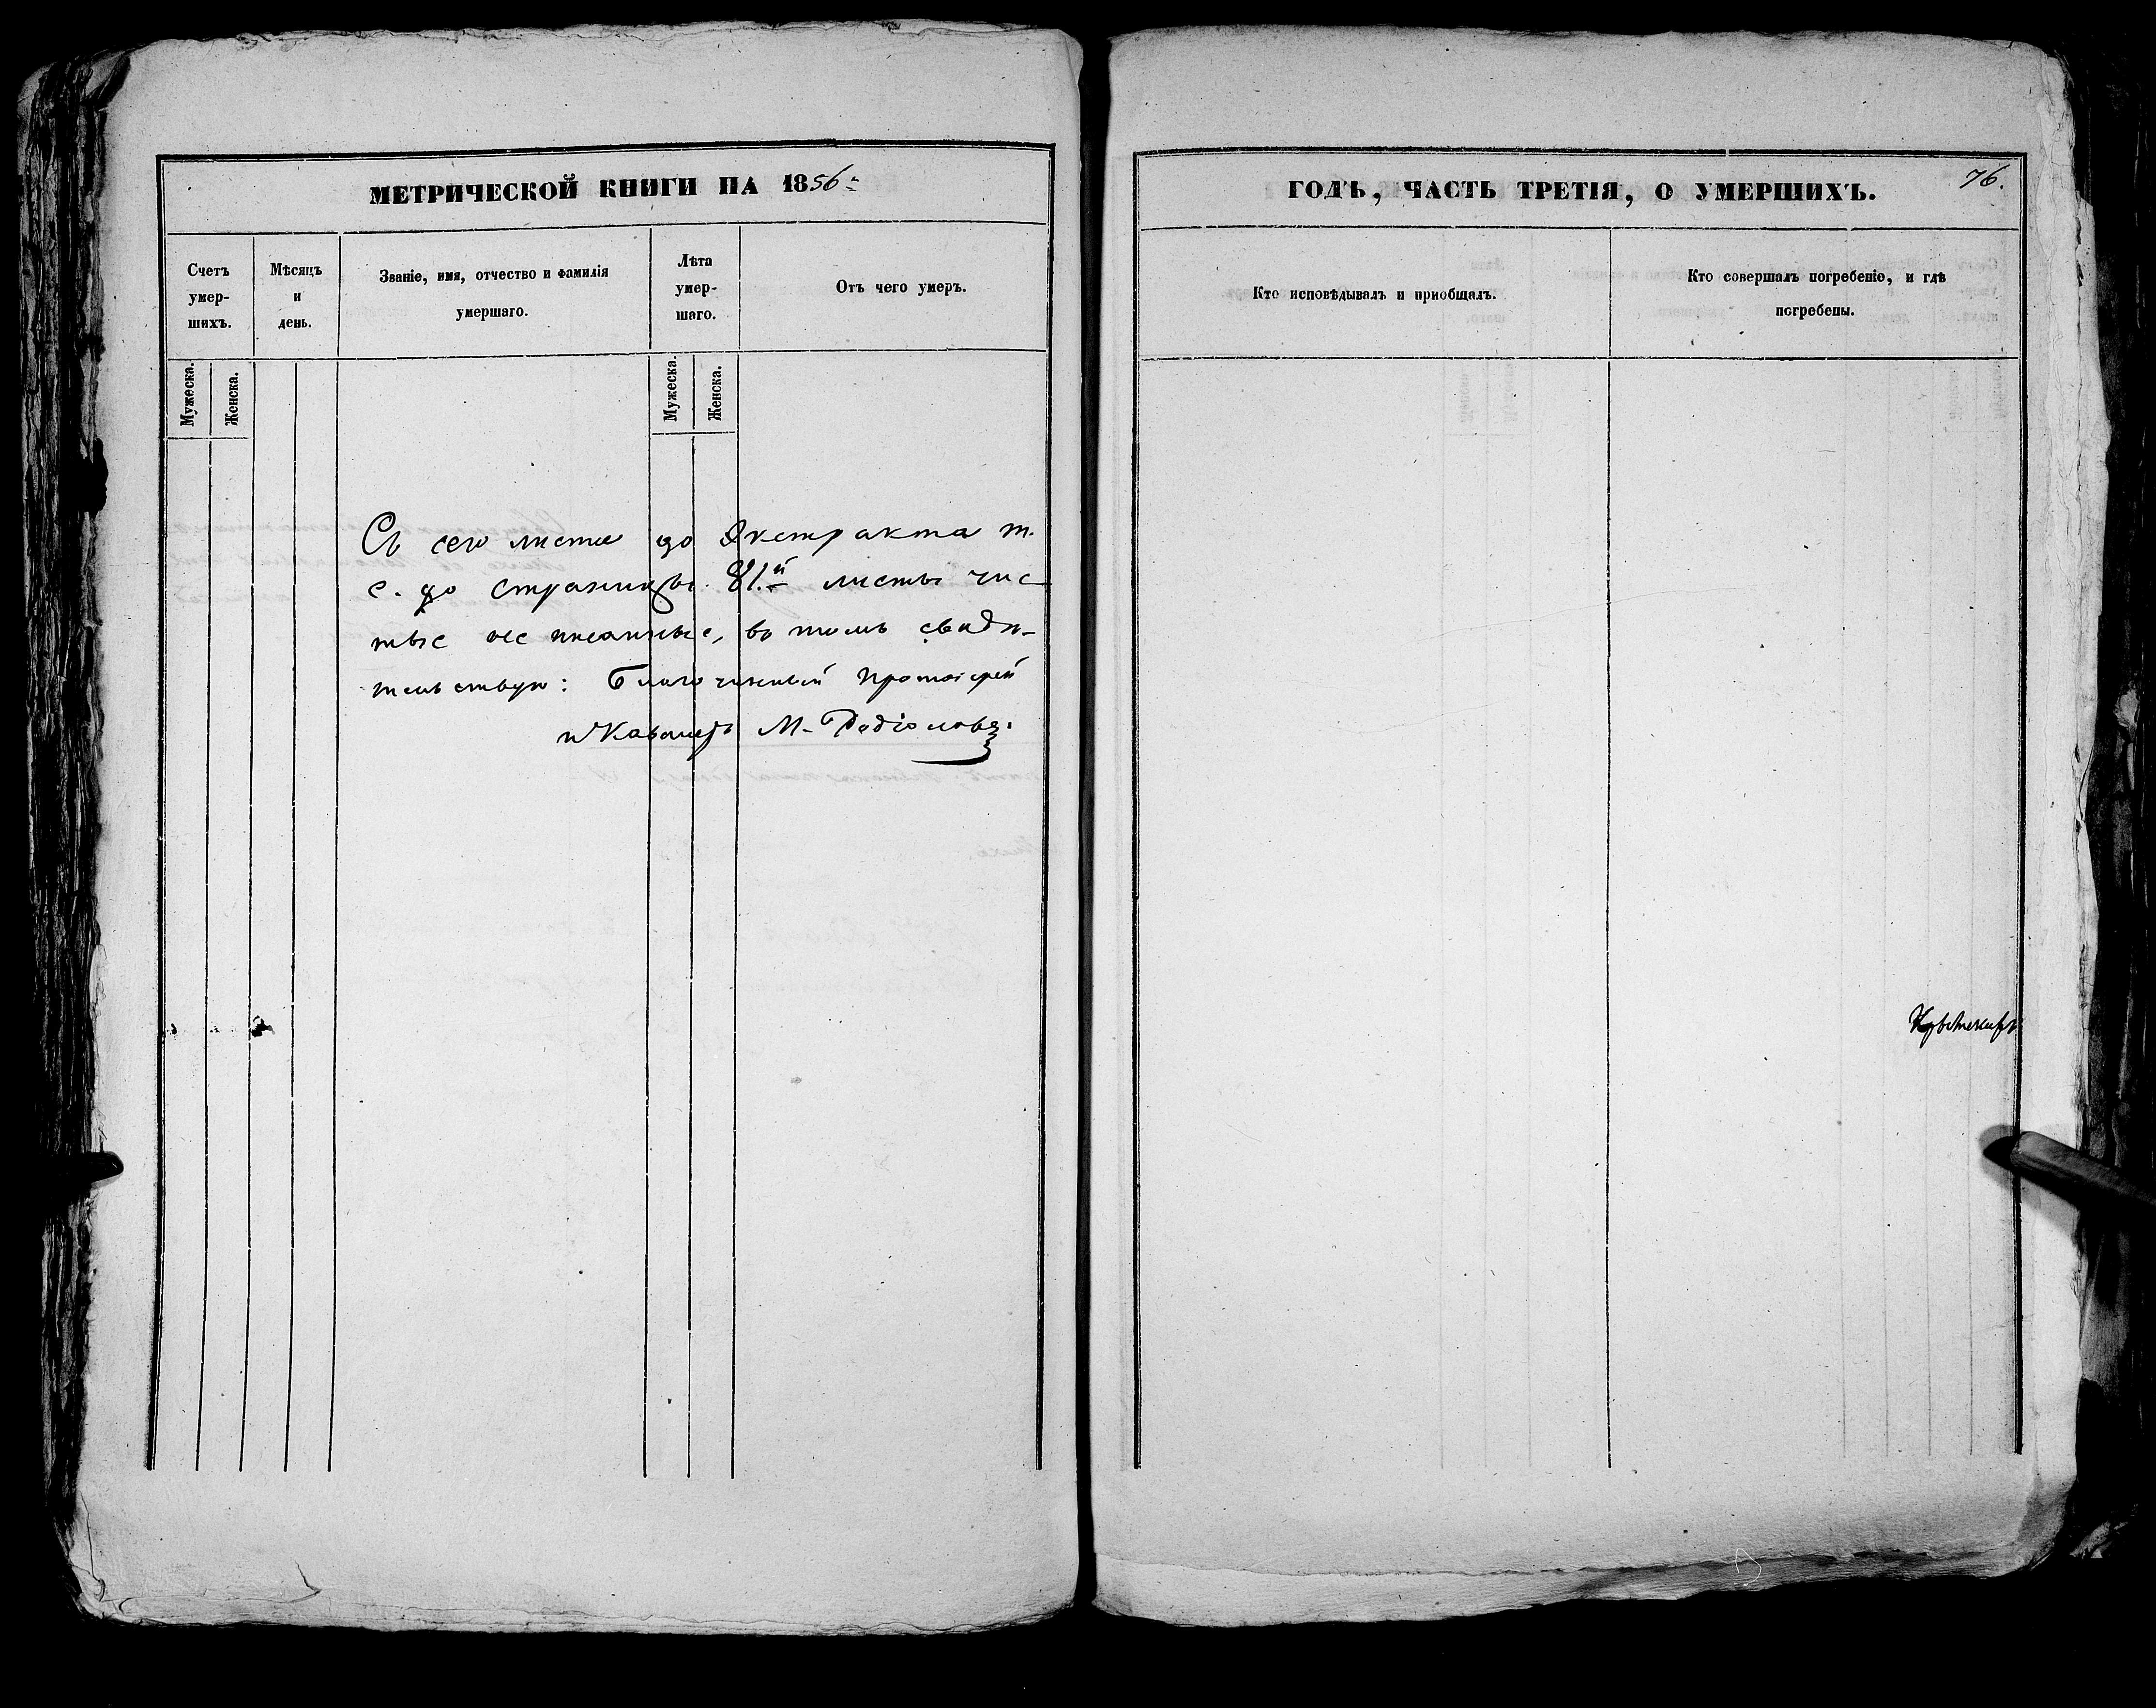 МЕТРИЧЕСКОЙ КНИГИ НА 1856
Счетъ умер-шихъ.
Мѣсяцъ и день.
Званіе, имя, отчество и фамилія умершаго.
Лѣта умер-шаго.
Отъ чего умеръ.
Мужеска.
Женска.
Мужеска.
Женска.
Съ сего листа до Экстракта т.
е. до страницы 81.й листы чис
тые не писанные, въ томъ свидѣ-
тельствую: Благочинный Протоіерей
и Кавалеръ М.
ГОДЪ, ЧАСТЬ ТРЕТІЯ, О УМЕРШИХЪ.
76.
Кто исповѣдывалъ и пріобщалъ.
Кто совершалъ погребеніе, и гдѣ погребены.